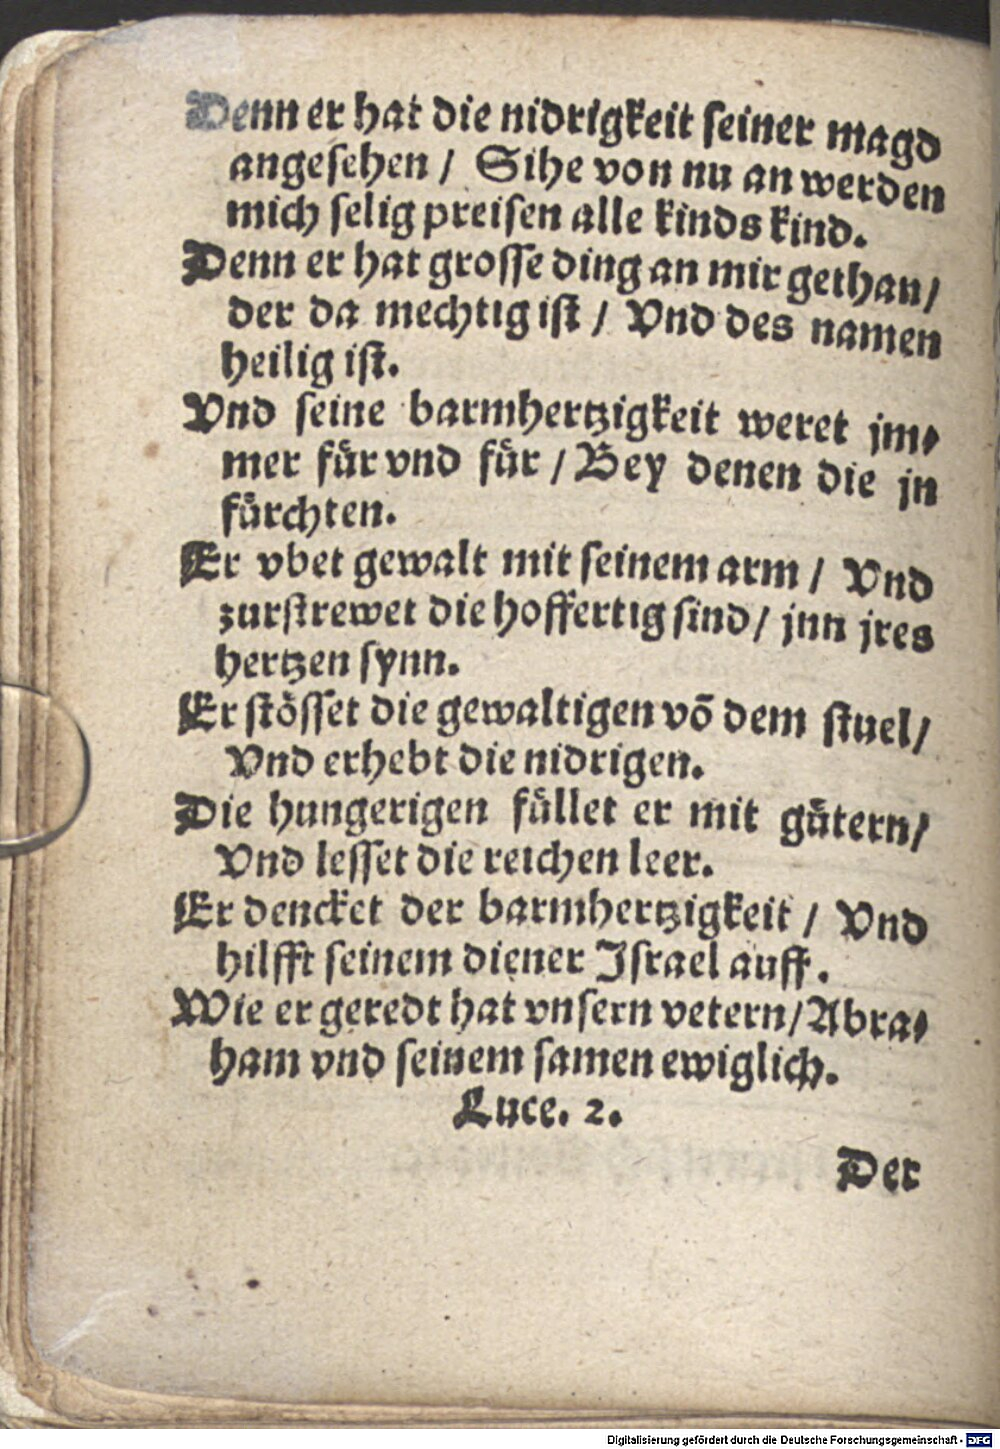 Denn er hat die nidrigkeit seiner magd
angesehen / Sihe von nu an werden
mich selig preisen alle kinds kind.
Denn er hat grosse ding an mir gethan/
der da mechtig ist / Vnd des namen
heilig ist.
Vnd seine barmhertzigkeit weret jm⸗
mer fuͤr vnd fuͤr / Bey denen die jn
fuͤrchten.
Er vbet gewalt mit seinem arm / Vnd
zurstrewet die hoffertig sind/ jnn jres
hertzen synn.
Er stoͤsset die gewaltigen võ dem stuel/
Vnd erhebt die nidrigen.
Die hungerigen fuͤllet er mit guͤtern/
Vnd lesset die reichen leer.
Er dencket der barmhertzigkeit / Vnd
hilfft seinem diener Israel auff.
Wie er geredt hat vnsern vetern/Abra⸗
ham vnd seinem samen ewiglich.
Luce. 2.
Der
Digitalisierung gefördert durch die Deutsche Forschungsgemeinschaft - DFG